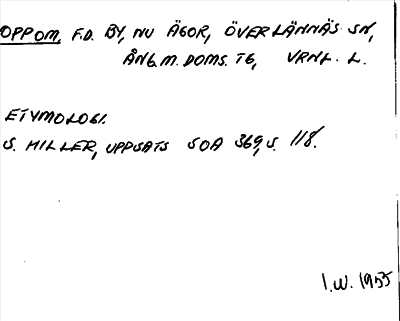 OPPOM, F.D. BY, NU ÄGOR, ÖVERLÄNNÄS SN,
ÅNG.M. DOMS. TG, VRNL. L.
ETYMOLOGI.
S. HILLER, UPPSATS SOA 369, S. 118.
I.W. 1955